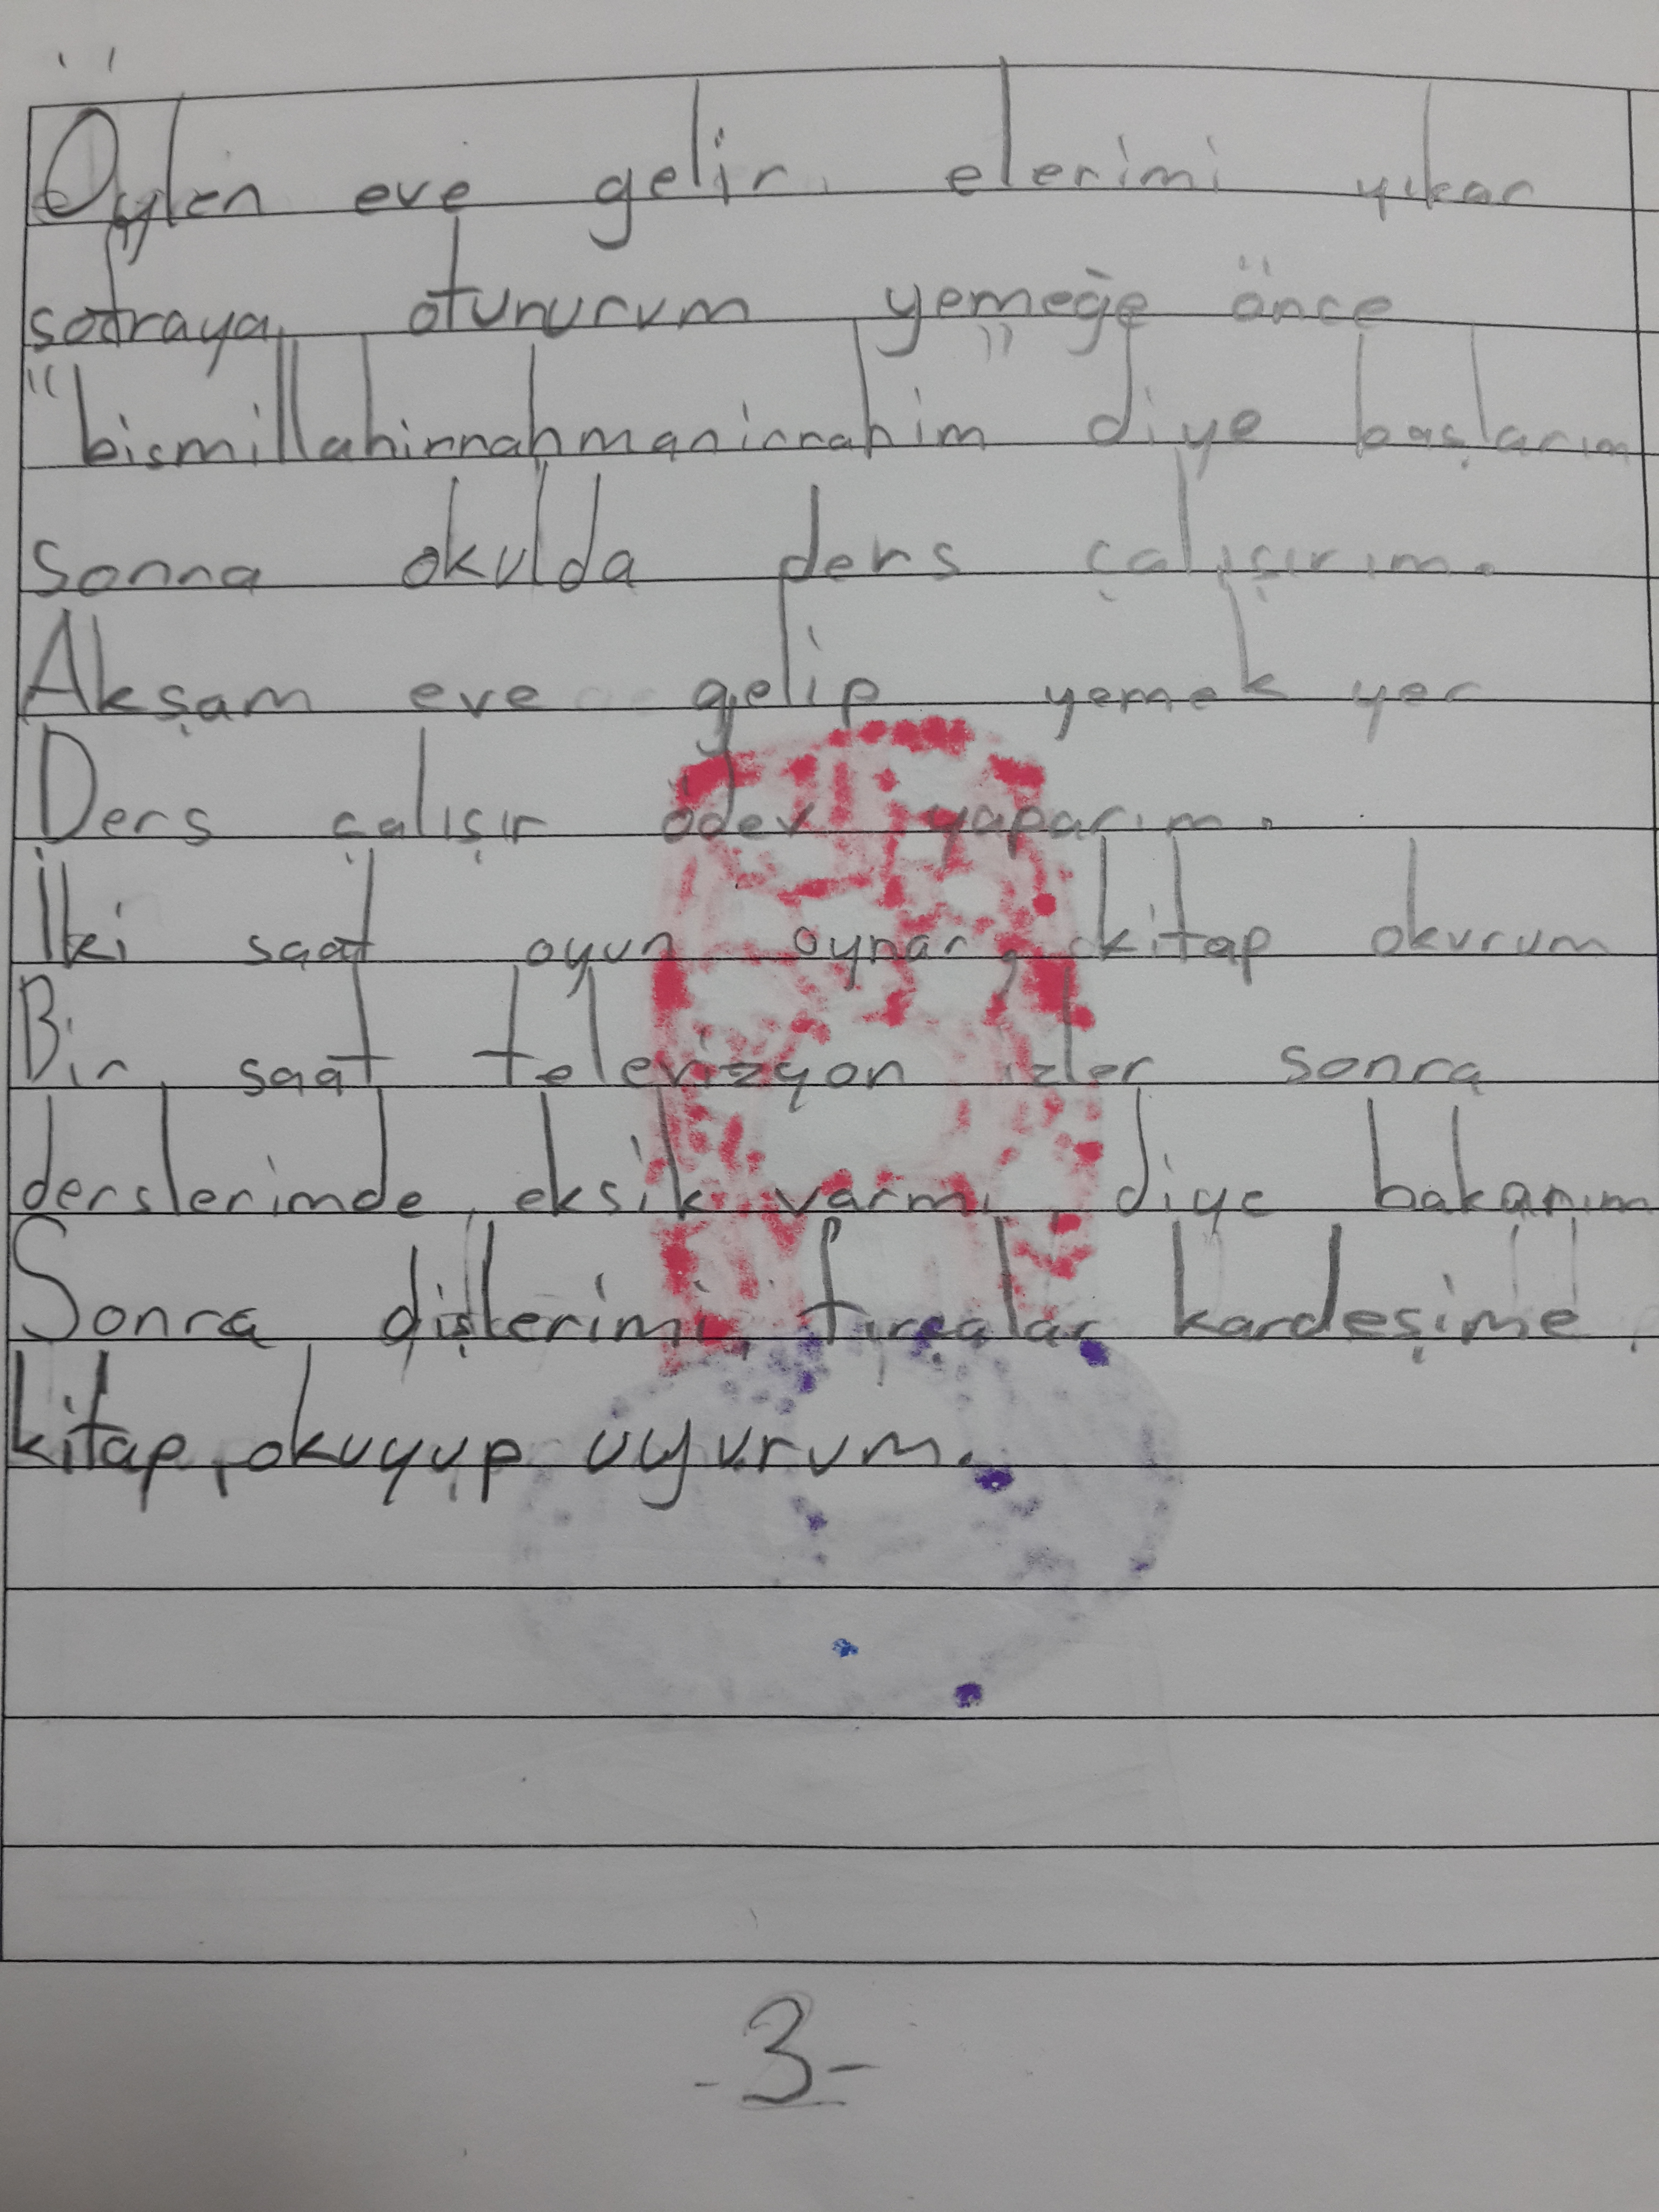 Öylen eve gelir elerimi yıkar
sofraya otururum yemeğe önce
"bismillahirrahmanirrahim" diye başlarım
Sonra okulda ders çalışırım.
Akşam eve gelip yemek yer
Ders çalışır ödev yaparım.
İki saat oyun oynar, kitap okurum
Bir saat televizyon izler sonra
derslerimde eksik varmı diye bakarım
Sonra dişlerimi fırçalar kardeşime
kitap okuyup uyurum.
-3-